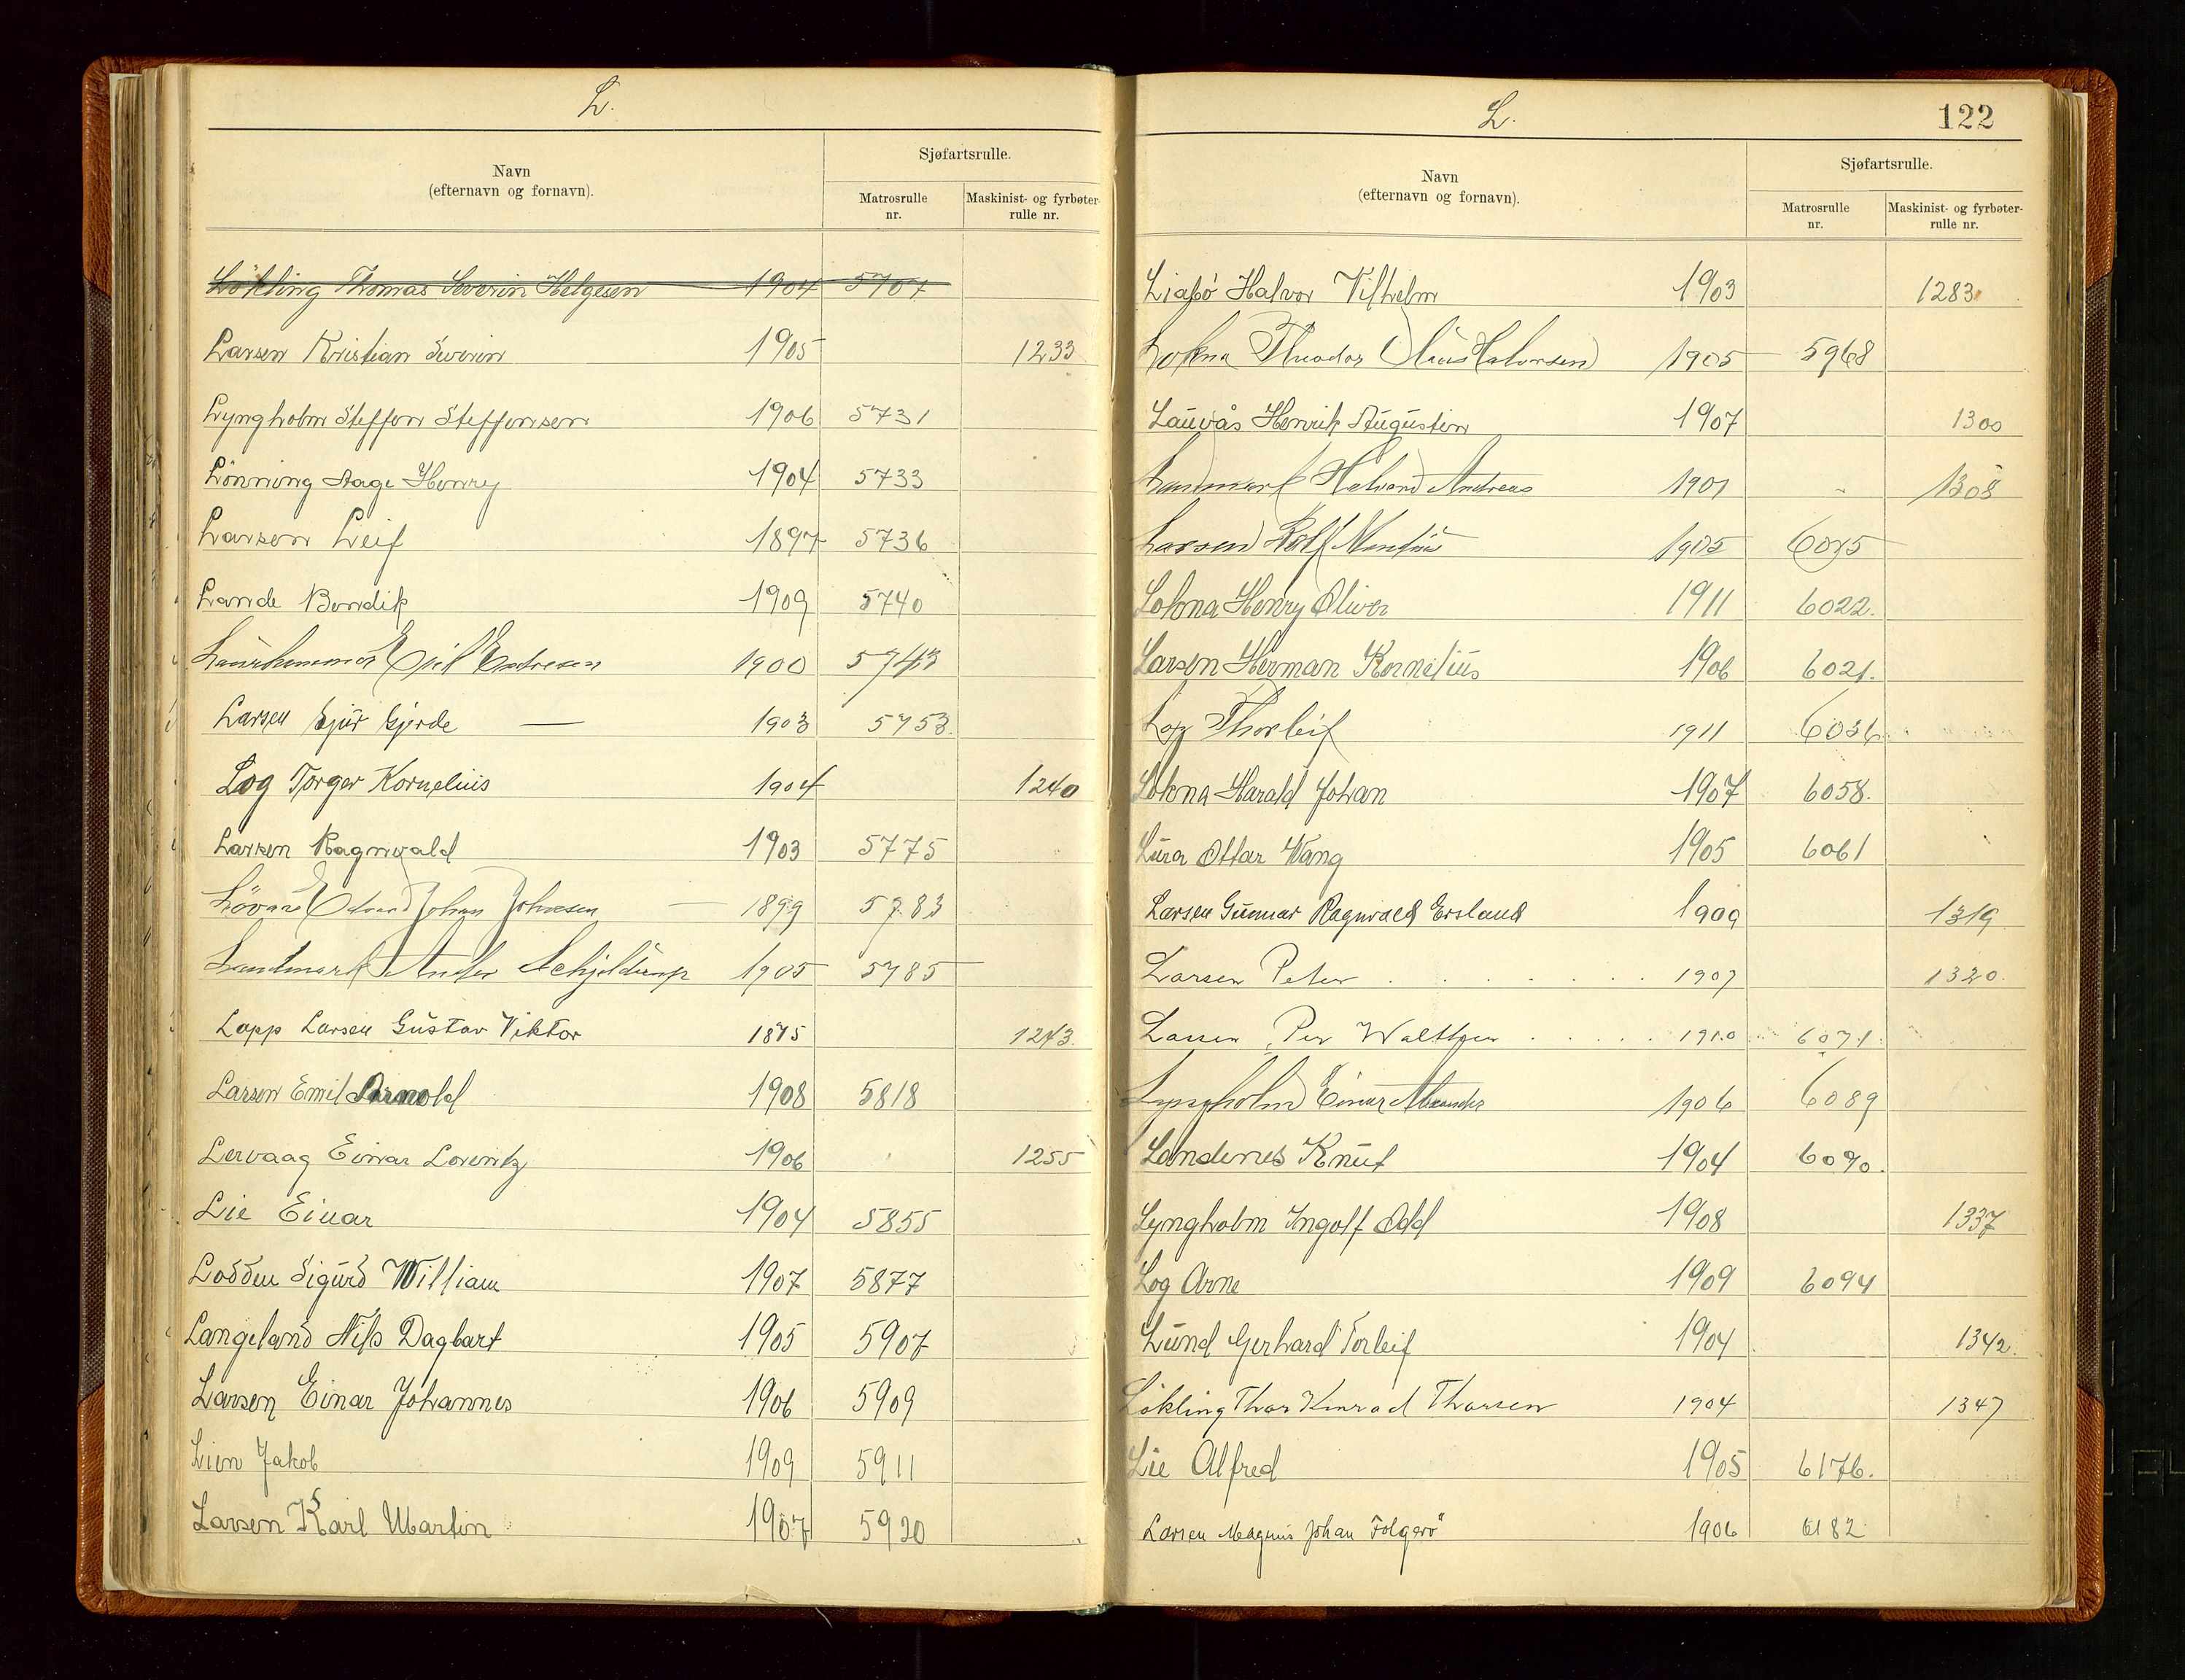 L.
Navn
(efternavn og fornavn).
Sjøfartsrulle.
Matrosrulle
nr.
Maskinist- og fyrbøter-
rulle nr.
Løkling Thomas Severin Helgesen 1904 5707
Larsen Kristian Severin 1905 1233
Lyngholm Steffen Steffensen 1906 5731
Lönning Aage Henry 1904 5733
Larsen Leif 1897 5736
Lande Bendik 1909 5740
Endresen 1900 5743
Larsen Sjur Gjerde 1903 5753
Log Torger Kornelius 1904 1240
Larsen Ragnvald 1903 5775
Lövaas Edvard Johan Johnsen 1899 5783
Landmark Schjelderup 1905 5785
Lapp Larsen Gustav Viktor 1875 1243
Larsen Emil Arnold 1908 5818
Lervaag Einar Lorentz 1906 1255
Lie Einar 1904 5855
Lodden Sigurd William 1907 5877
Langeland Nils Dagbart 1905 5907
Larsen Einar Johannes 1906 5909
Lien Jakob 1909 5911
Larsen Karl Martin 1907 5920
L.
122
Navn
(efternavn og fornavn).
Sjøfartsrulle.
Matrosrulle
nr.
Maskinist- og fyrbøter-
rulle nr.
Liabö Halvor Vilhelm 1903 1283
Lokna Theodor Claus Halvorsen 1905 5968
Lauvås Henrik Augustin 1907 1300
Landmark Halvard Andreas 1901 1308
Larsen Rolf 1905 6015
Lokna Henry Oliver 1911 6022.
Larsen Herman Kornelius 1906 6021.
Log Thorleif 1911 6036
Lokna Harald Johan 1907 6058.
Lura Ottar Wang 1905 6061
Larsen Gunnar Ragnvald Ersland 1909 1319
Larsen Peter 1907 1320.
Lassen Per Walther 1910 6071.
Lyngholm Einar Alexander 1906 6089
Landenes Knut 1904 6090.
Lyngholm Ingolf Odd 1908 1337
Log Arne 1909 6094
Lund Gerhard Torleif 1904 1342.
Løkling Thor Konrad Thorsen 1904 1347
Lie Alfred 1905 6176.
Larsen Magnus Johan Folgerö 1906 6182